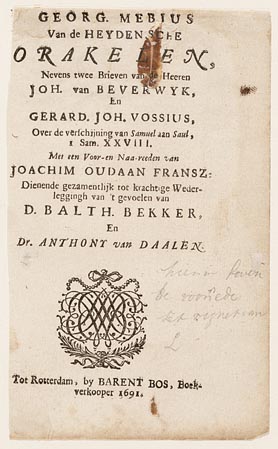 GEORG. MEBIUS
Van de HEYDENSCHE
ORAKELEN,
Nevens twee Brieven van de Heeren
JOH. van BEVERWYK,
En
GERARD. JOH. VOSSIUS,
Over de verschijning van Samuel aan Saul,
1 Sam. XXVIII.
Met een Voor-en Naa-reeden van
JOACHIM OUDAAN FRANSZ:
Dienende gezamentlijk tot krachtige Weder-
leggingh van 't gevoelen van
D. BALTH. BEKKER,
En
Dr. ANTHONY van DAALEN.
boven
de
Tot Rotterdam, by BARENT BOS, Boek-
verkooper 1691.